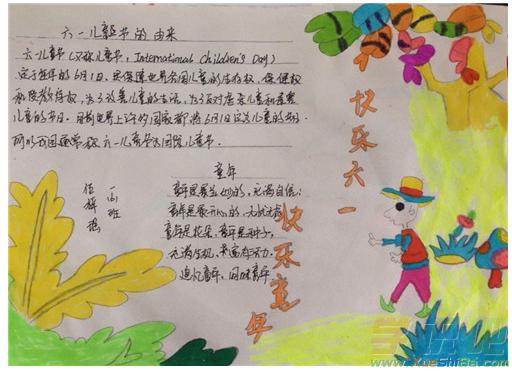 六一儿童节的由来
六一儿童节（又称儿童节，International Children's Day）
定于每年的6月1日，为保障世界各国儿童的生存权、保健权
和受教育权，为了改善儿童的生活，为了反对虐杀儿童和毒害
儿童的节日。目前世界上许多国家都将6月1日定为儿童的节日。
所以我国通常称六一儿童节为国际儿童节。
快乐六一
童年
童年是
充满自信；
童年是 开心的，无忧无虑
童年是花朵，童年是种子，
充满生机，
追忆童年，回味童年。
一 班
快乐童年
学识吧
www.XueShiBei.com